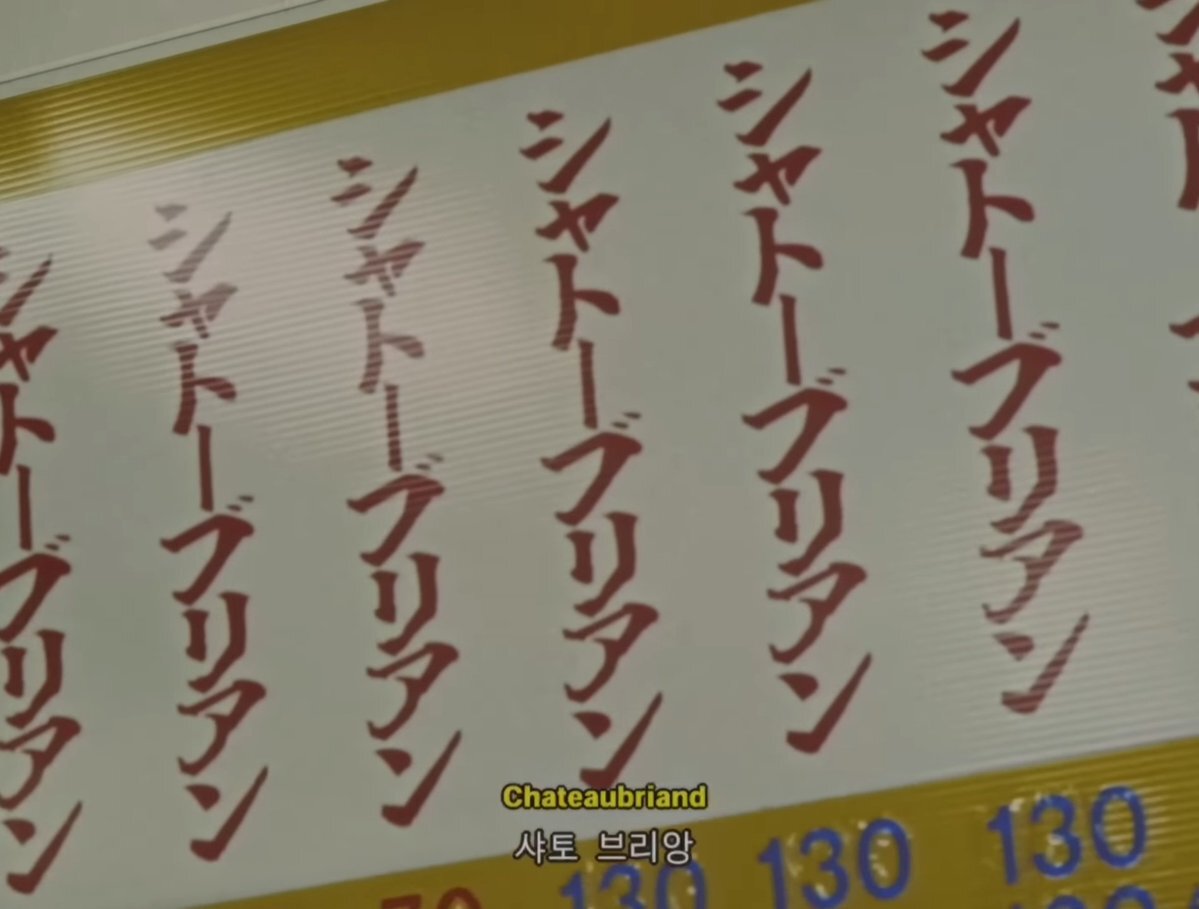 シャトーブリアン
シャトーブリアン
シャトーブリアン
シャトーブリアン
シャトーブリアン
シャトーブリアン
130 130 130
Chateaubriand
샤토 브리앙